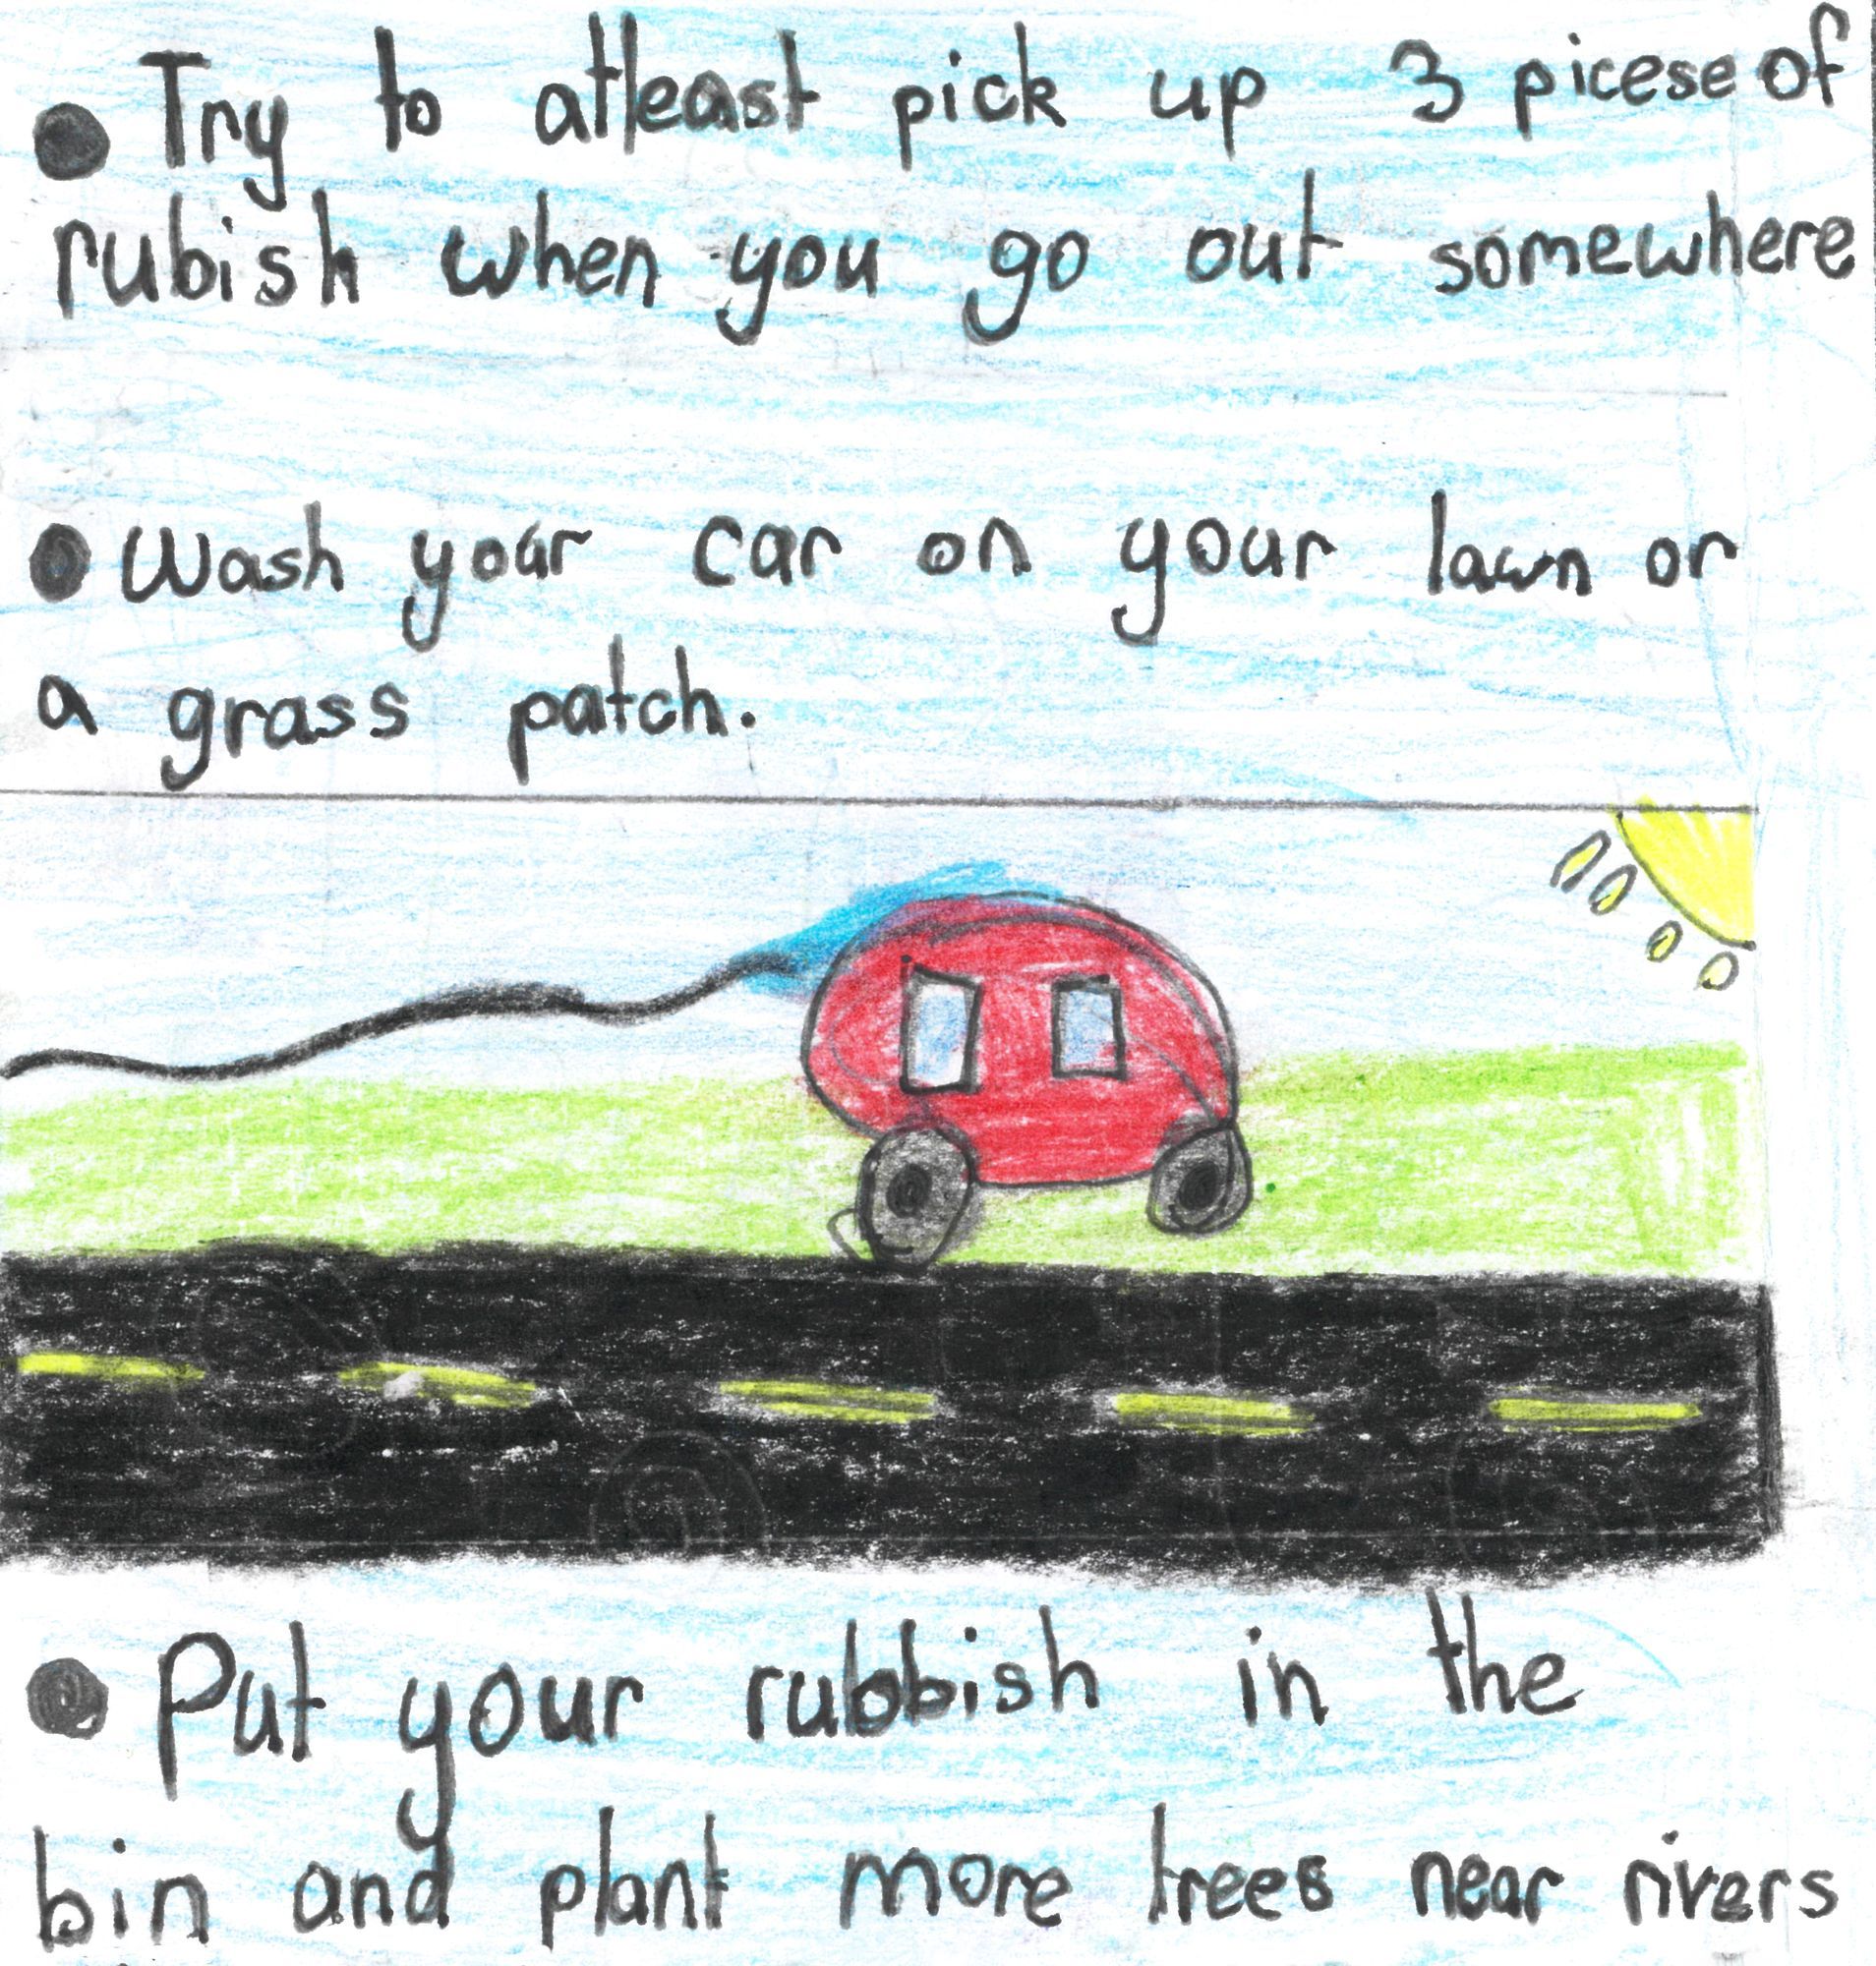 ● Try to atleast pick up 3 picese of
rubish when you go out somewhere
● Wash your car on your lawn or
a grass patch.
● Put your rubbish in the
bin and plant more trees near rivers